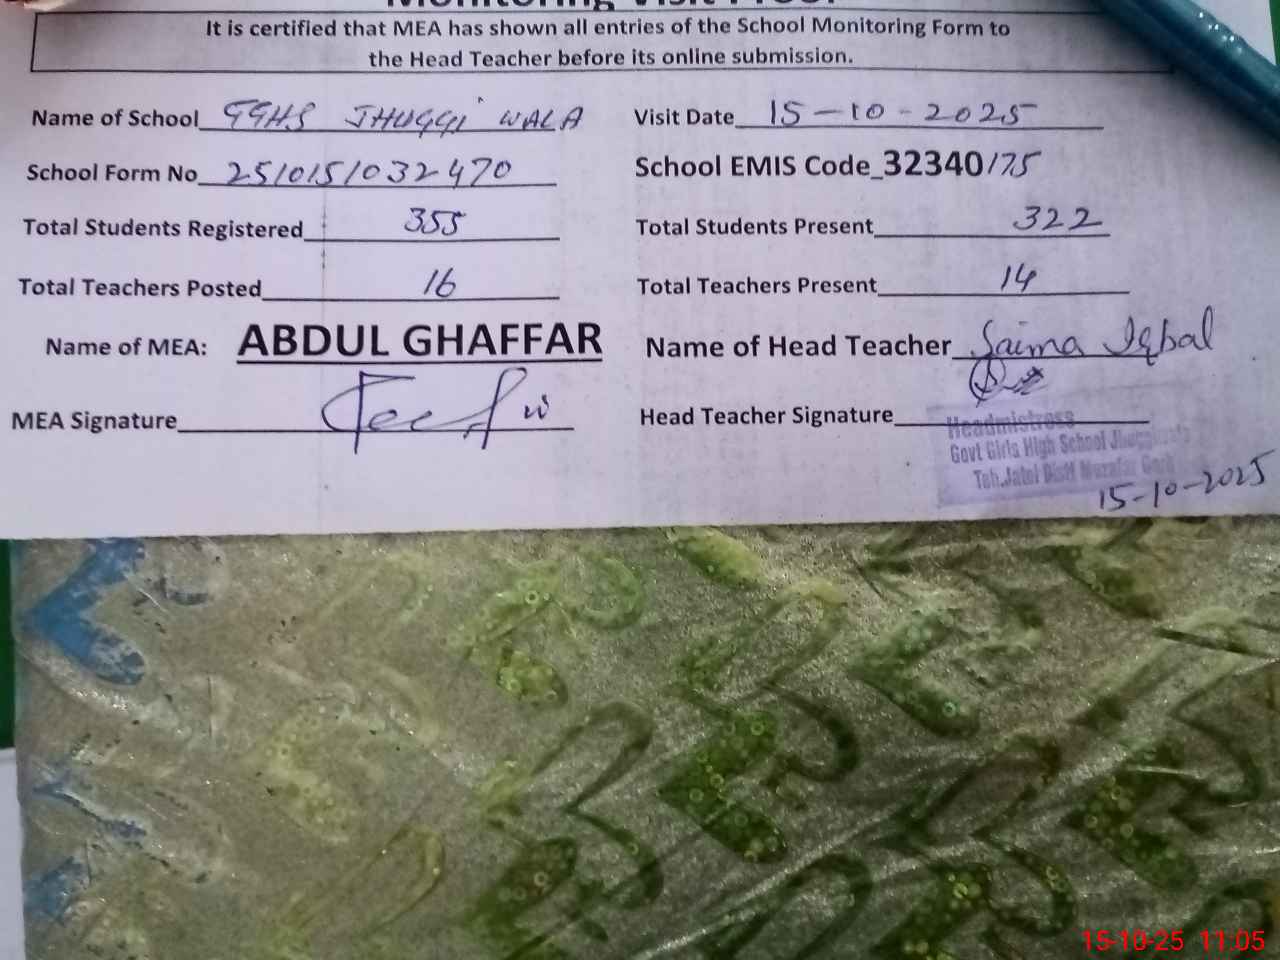 Monitoring Visit Proof
It is certified that MEA has shown all entries of the School Monitoring Form to
the Head Teacher before its online submission.
Name of School GGHS JHUGGI WALA Visit Date 15-10-2025
School Form No 2510151032470 School EMIS Code_32340175
Total Students Registered 355 Total Students Present 322
Total Teachers Posted 16 Total Teachers Present 14
Name of MEA: ABDUL GHAFFAR Name of Head Teacher Saima Iqbal
MEA Signature Head Teacher Signature
Headmistress
Govt Girls High School
Teh.Jatoi Distt Muzafar Garh
15-10-2025
15-10-25 11:05